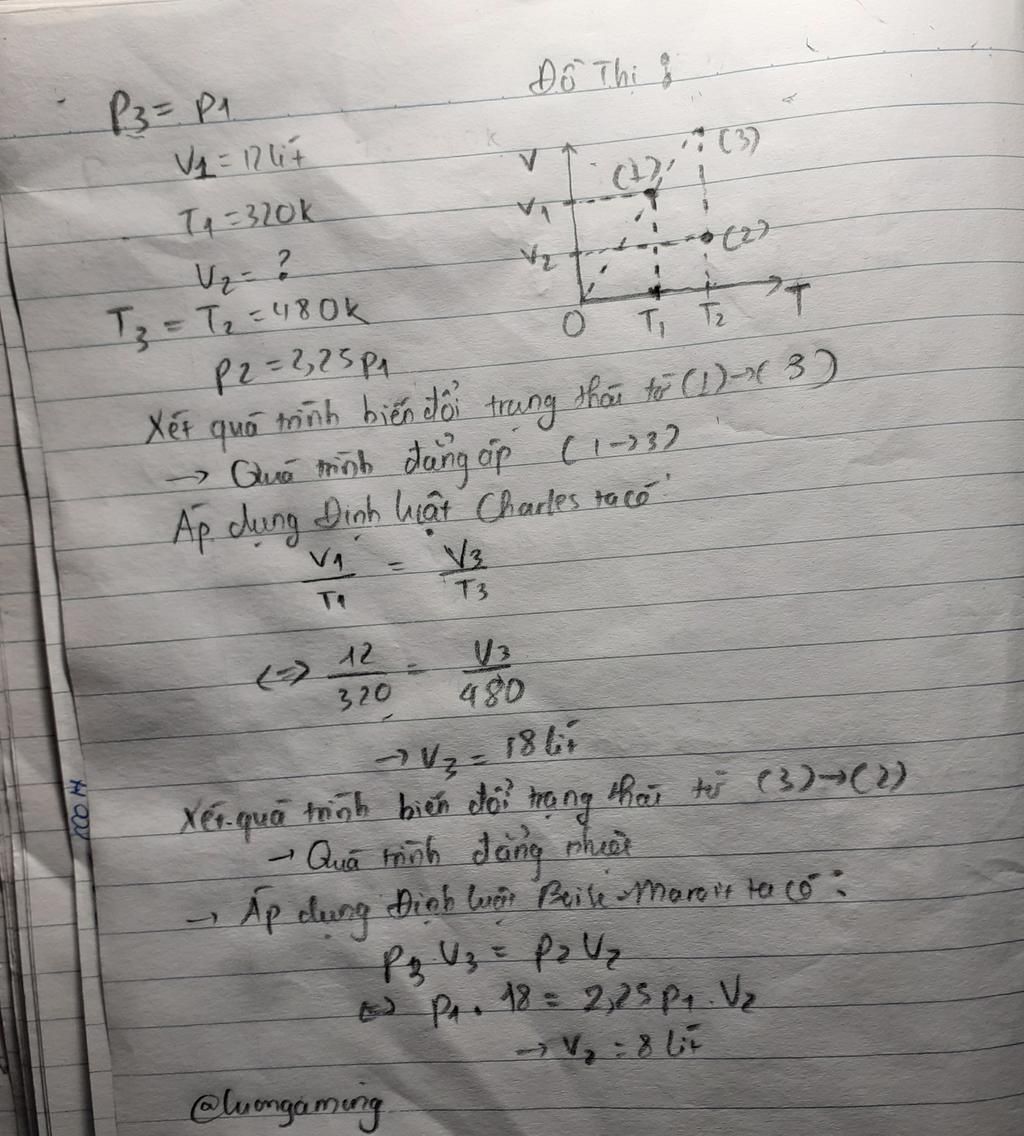 Đồ Thị :
P3 = P1
V1 = 12 lít
T1 = 320K
V2 = ?
T3 = T2 = 480K
P2 = 2,25P1
V
(1)
(3)
V1
V2
(2)
O
T1
T2
T
Xét quá trình biến đổi trạng thái từ (1)→(3)
→ Quá trình đẳng áp (1→3)
Áp dụng Định luật Charles ta có:
V1/T1 = V3/T3
<=> 12/320 = V3/480
→ V3 = 18 lít
Xét quá trình biến đổi trạng thái từ (3)→(2)
→ Quá trình đẳng nhiệt
→ Áp dụng Định luật ta có:
P3 V3 = P2 V2
<=> P1 . 18 = 2,25P1 . V2
→ V2 = 8 lít
100 H
@luongaming